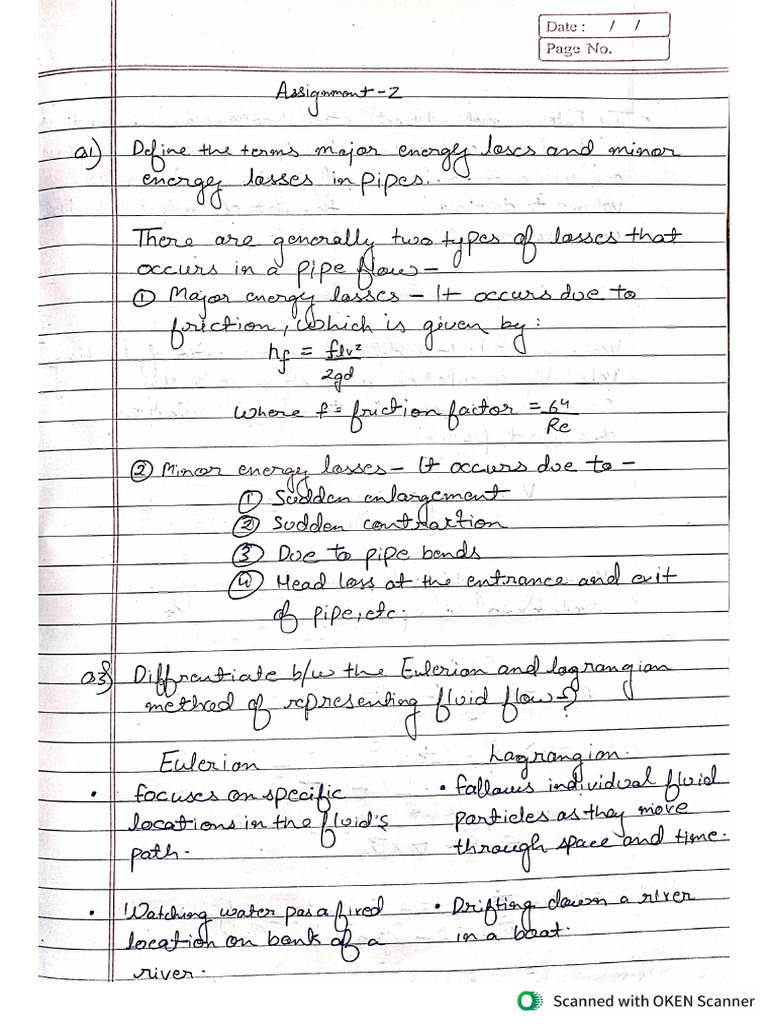 Date : / /
Page No.
Assignment-2
Q1) Define the terms major energy loses and minor
energy losses in pipes.
There are generally two types of losses that
occurs in a pipe flow-
① Major energy losses - It occurs due to
friction, which is given by:
hf = flv²
2gd
Where f = friction factor = 64
Re
② Minor energy losses - It occurs due to -
① Sudden enlargement
② Sudden contraction
③ Due to pipe bends
④ Head loss at the entrance and exit
of pipe, etc.
Q3) Diffrentiate b/w the Eulerion and lagrangian
method of representing fluid flow-?
Eulerion Lagrangion.
• focuses on specific
locations in the fluid's
path.
• follows individual fluid
particles as they move
through space and time.
• Watching water pas a fixed
location on bank of a
river.
• Drifting down a river
in a boat.
Scanned with OKEN Scanner